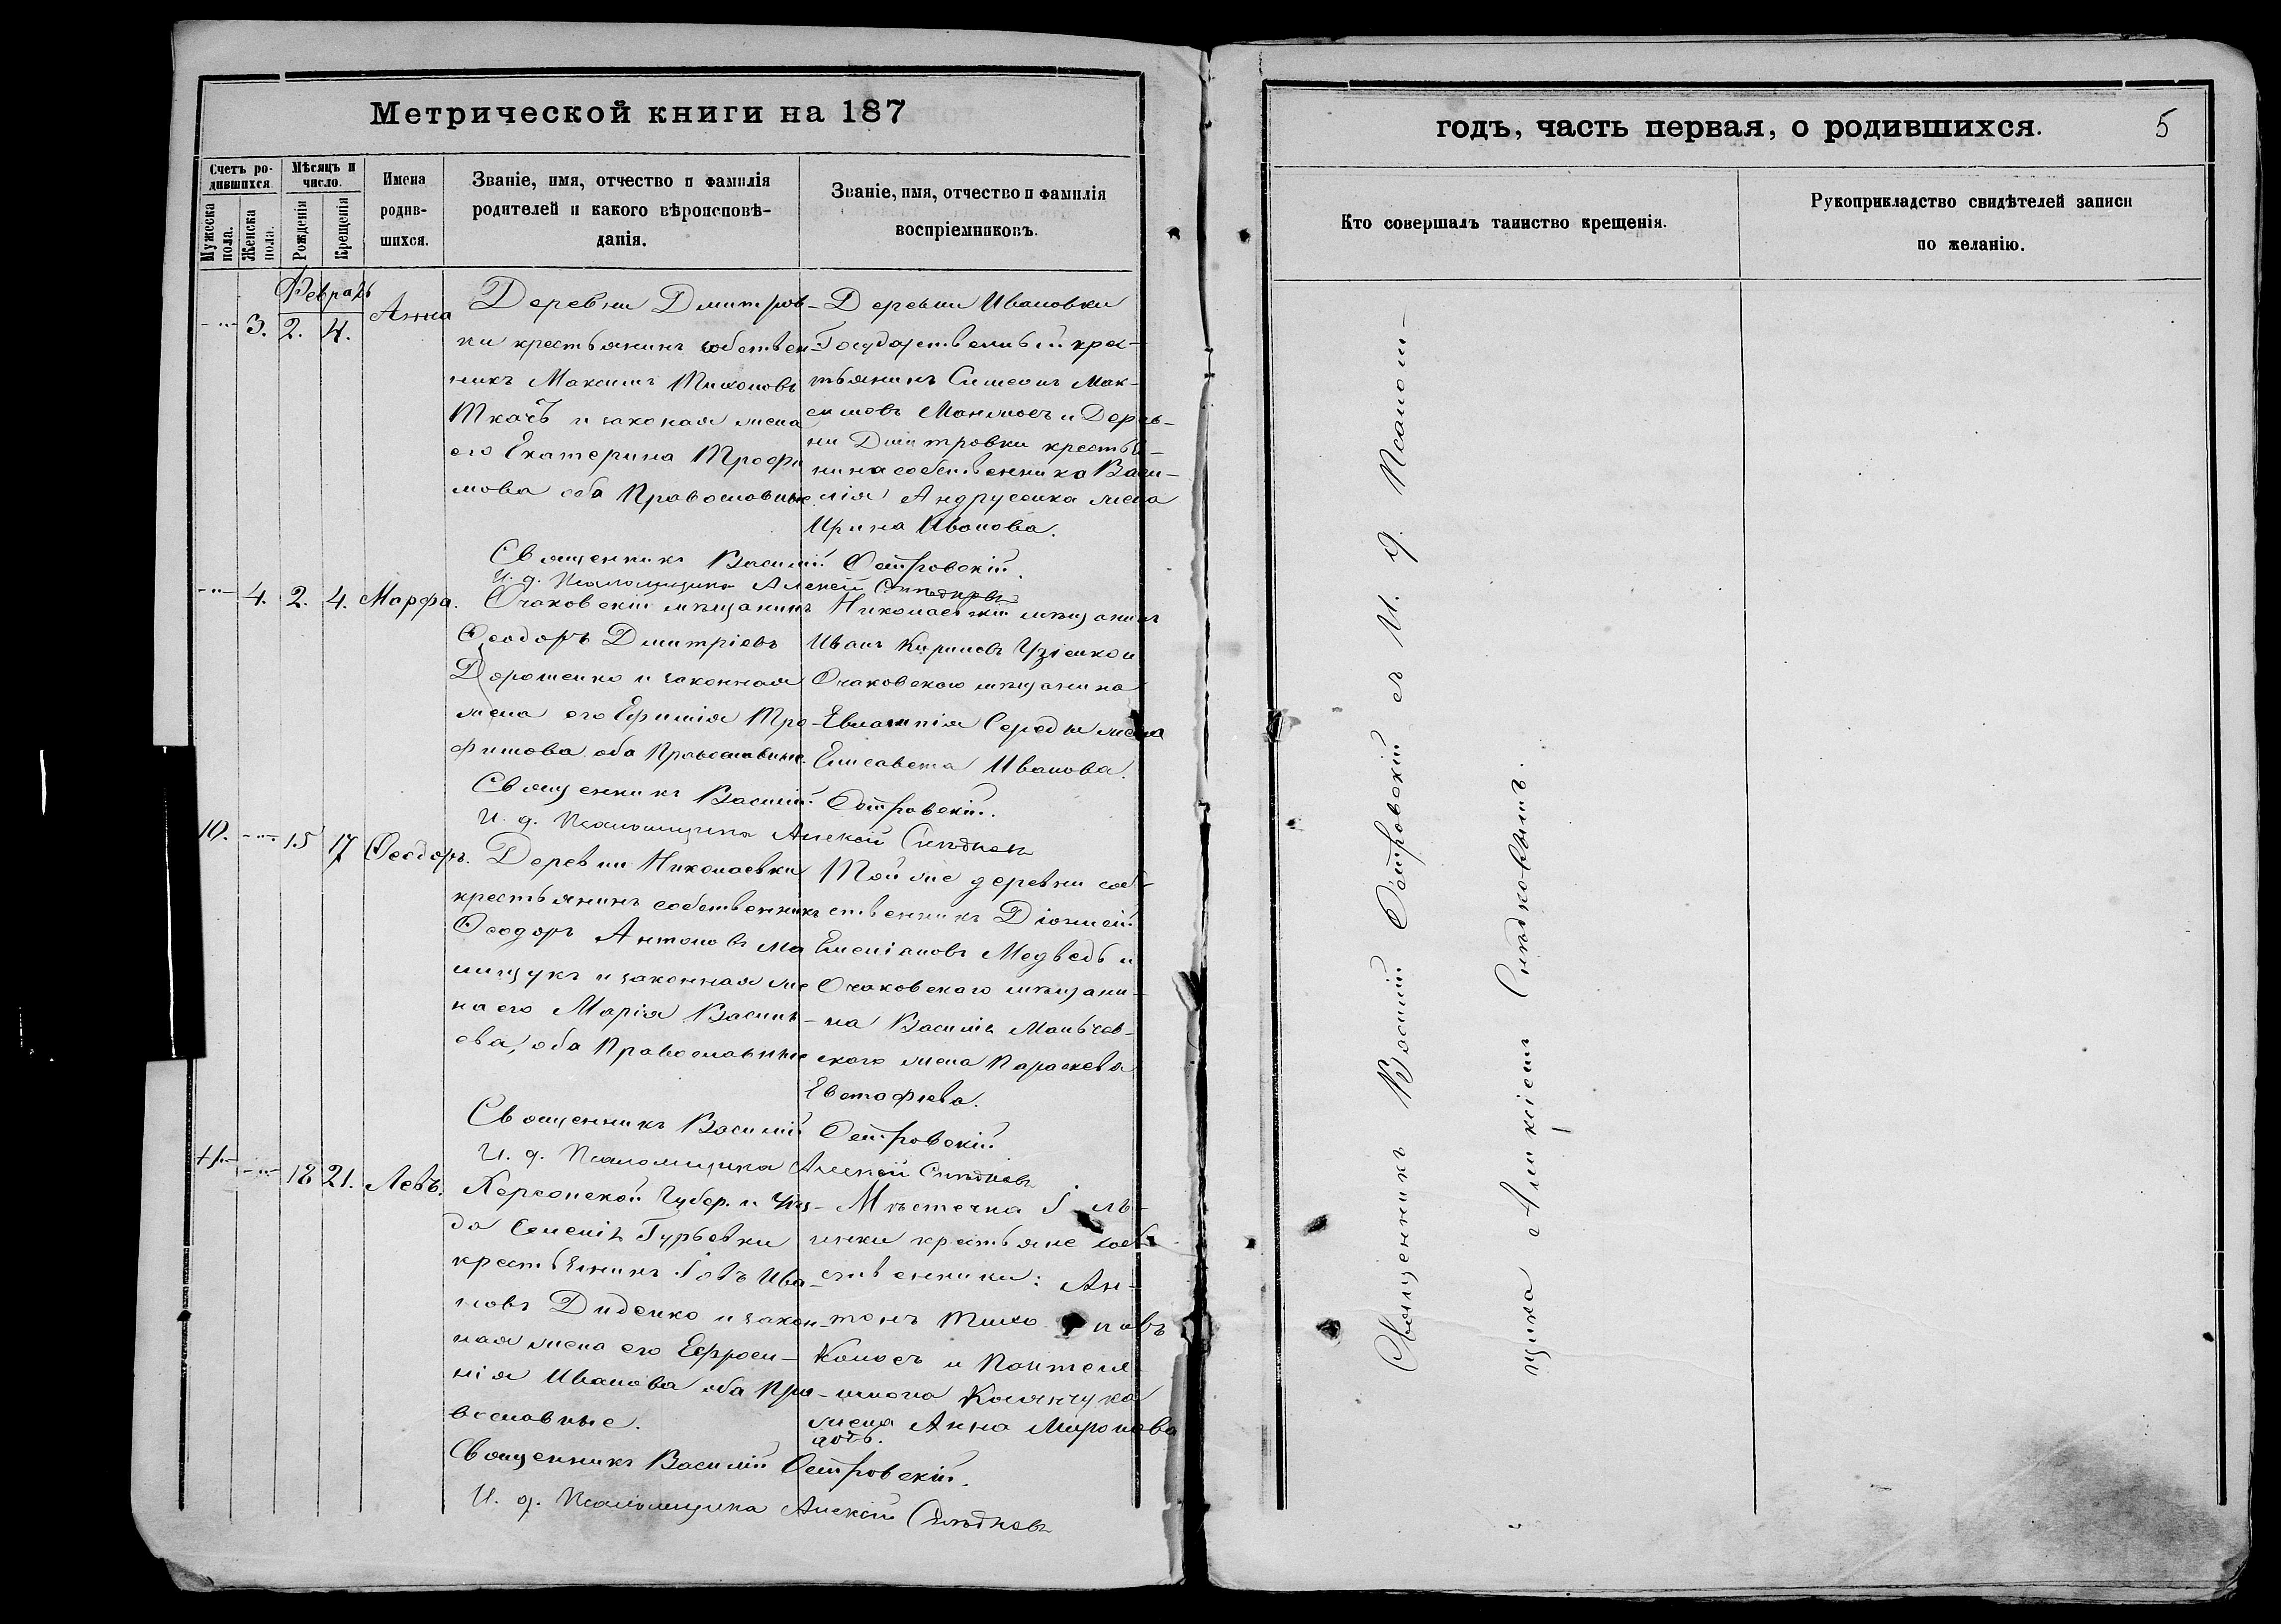 Метрической книги на 187
Счетъ ро-
дившихся.
Мѣсяцъ и
число.
Мужеска
пола.
Женска
пола.
Рожденія
Крещенія
Имена
родив-
шихся.
Званіе, имя, отчество и фамилія
родителей и какого вѣроисповѣ-
данія.
Званіе, имя, отчество и фамилія
воспріемниковъ.
Февраль
3. 2. 4. Анна
Деревни Дмитров-
ки крестьянинъ собствен-
никъ Максимъ Тихоновъ
Ткачъ и законая жена
его Екатерина Трофи
мова оба Православные
Деревни Ивановки
Государственный крес-
тьянинъ Симеонъ Мак-
симовъ и Дерев-
ни Дмитровки крестья-
нина собственника Васи-
лія Андрусенка жена
Ирина Иванова.
Священникъ Василій Островскій.
И. д. Псаломщика Алексій Снѣдковъ
4. 2. 4. Марфа.
Очаковскій мѣщанинъ
Ѳеодоръ Дмитріевъ
Дорошенко и законная
жена его Ефимія Тро-
фимова оба Православные.
Николаевскій мѣщанинъ
Иванъ и
Очаковского мѣщанина
Евлампія Середы жена
Елисавета Иванова.
Священникъ Василій Островскій.
И. д. Псаломщика Алексій Снѣдковъ
10. 15 17 Ѳеодоръ.
Деревни Николаевки
крестьянинъ собственникъ
Ѳеодоръ Антоновъ Ма
лищукъ и законная же
на его Марія Василь-
ева, оба Православные
Той же деревни соб-
ственникъ Діонисій
Емеліановъ Медведь и
Очаковского мѣщани-
на Василія
ского жена Параскева
Евстафіева.
Священникъ Василій Островскій
И. д. Псаломщика Алексій Снѣдковъ
11. 18 21. Левъ.
Херсонской Губер. и Уѣз-
да Селенія Гурьевки
крестьянинъ Іовъ Ива-
новъ Диденко и закон-
ная жена его Ефроси-
нія Иванова оба Пра-
вославные.
Мѣстечка
крестьяне соб-
ственники: Ан-
тонъ Тихо новъ
и Пантеле-
имона
жена Анна Миронова
дочь.
Священникъ Василій Островскій.
И. д. Псаломщика Алексій Снѣдковъ
годъ, часть первая, о родившихся.
5
Кто совершалъ таинство крещенія.
Рукоприкладство свидѣтелей записи
по желанію.
Священникъ Василій Островскій съ И. д. Псалом-
щика Алексіемъ Снѣдковымъ.